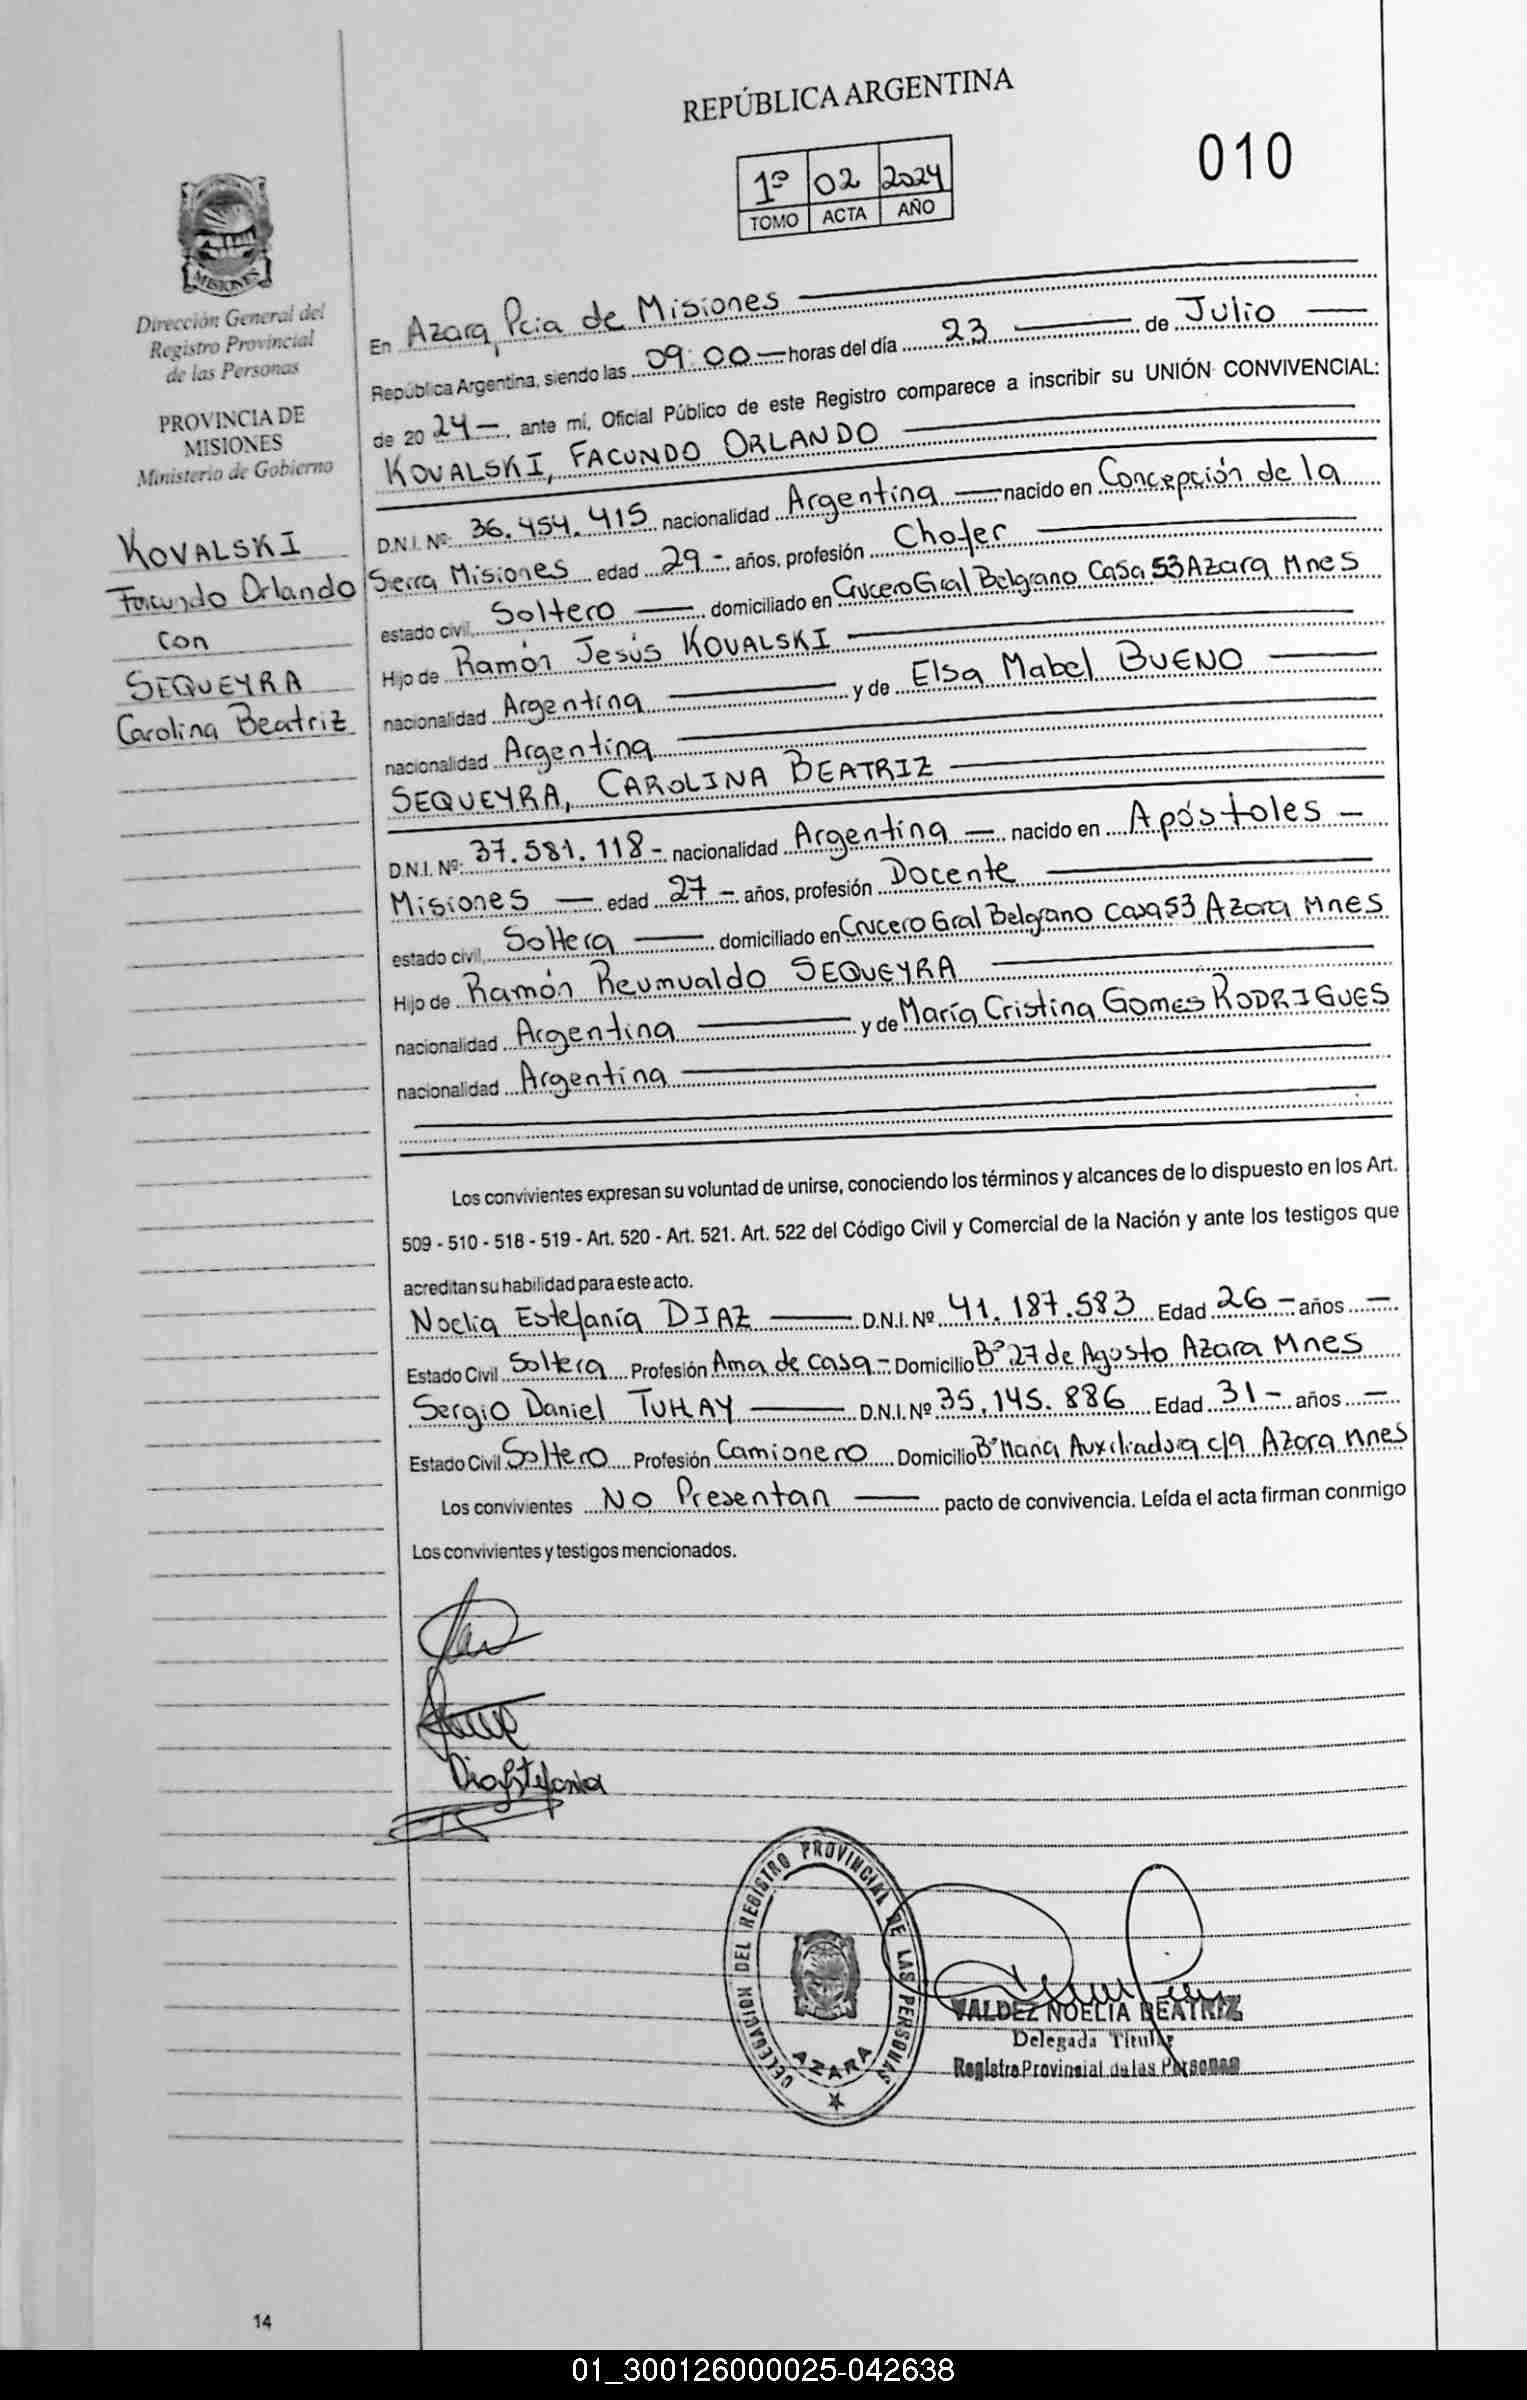 REPÚBLICA ARGENTINA
010
1º 02 2024
TOMO ACTA AÑO
MISIONES
Dirección General del
Registro Provincial
de las Personas
PROVINCIA DE
MISIONES
Ministerio de Gobierno
KOVALSKI
Facundo Orlando
con
SEQUEYRA
Carolina Beatriz
En Azara, Pcia de Misiones
República Argentina, siendo las 09:00 horas del día 23 de Julio
de 20 24 -, ante mí, Oficial Público de este Registro comparece a inscribir su UNIÓN CONVIVENCIAL:
KOVALSKI, FACUNDO ORLANDO
D.N.I. Nº: 36.454.415 nacionalidad Argentina nacido en Concepción de la
Sierra Misiones edad 29 - años, profesión Chofer
estado civil, Soltero domiciliado en Crucero Gral Belgrano Casa 53 Azara Mnes
Hijo de Ramón Jesús KOVALSKI
nacionalidad Argentina y de Elsa Mabel BUENO
nacionalidad Argentina
SEQUEYRA, CAROLINA BEATRIZ
D.N.I. Nº: 37.581.118 - nacionalidad Argentina nacido en Apóstoles
Misiones edad 27 - años, profesión Docente
estado civil, Soltera domiciliado en Crucero Gral Belgrano casa 53 Azara Mnes
Hijo de Ramón Reumualdo SEQUEYRA
nacionalidad Argentina y de María Cristina Gomes RODRIGUES
nacionalidad Argentina
Los convivientes expresan su voluntad de unirse, conociendo los términos y alcances de lo dispuesto en los Art.
509 - 510 - 518 - 519 - Art. 520 - Art. 521. Art. 522 del Código Civil y Comercial de la Nación y ante los testigos que
acreditan su habilidad para este acto.
Noelia Estefanía DIAZ D.N.I. Nº 41.187.583 Edad 26 - años -
Estado Civil Soltera Profesión Ama de casa - Domicilio Bº 27 de Agosto Azara Mnes
Sergio Daniel TUHAY D.N.I. Nº 35.145.886 Edad 31 - años -
Estado Civil Soltero Profesión Camionero Domicilio Bº Maria Auxiliadora c/9 Azara Mnes
Los convivientes No Presentan pacto de convivencia. Leída el acta firman conmigo
Los convivientes y testigos mencionados.
DELEGACION DEL REGISTRO PROVINCIAL DE LAS PERSONAS
AZARA
VALDEZ NOELIA BEATRIZ
Delegada Titular
Registro Provincial de las Personas
14
01_300126000025-042638